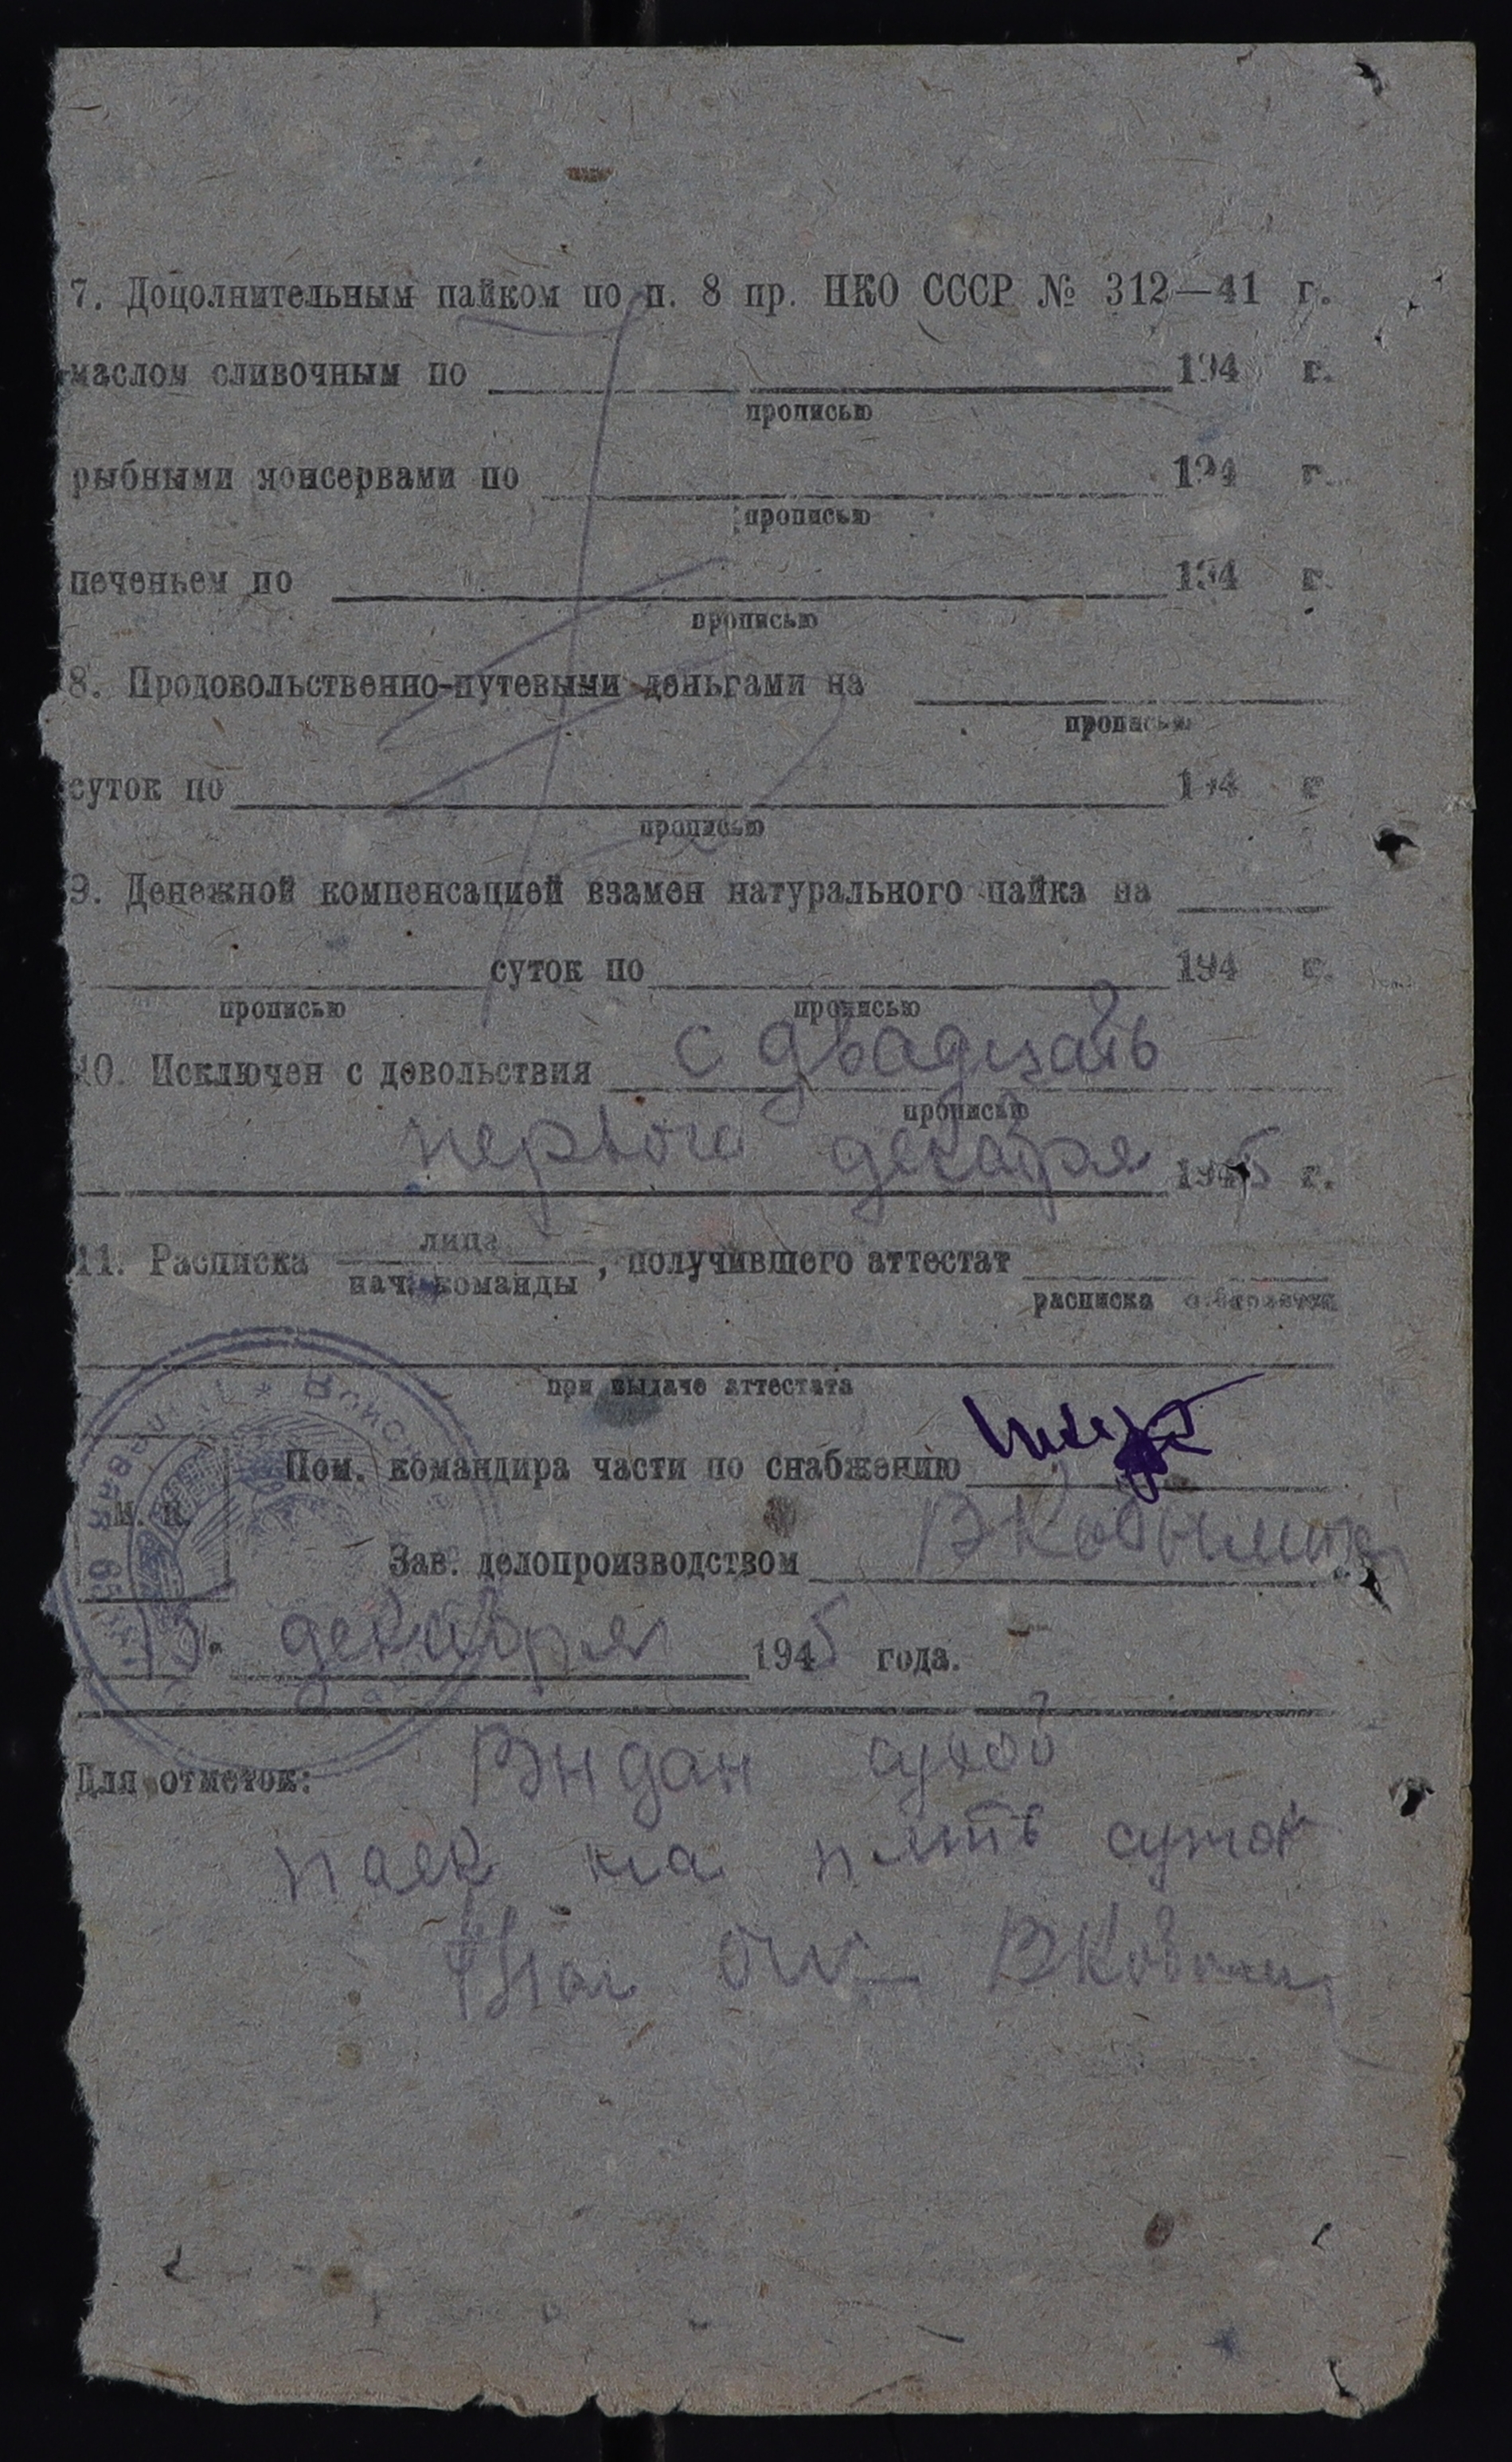 7. Дополнительным пайком по п. 8 пр. НКО СССР № 312—41 г.
маслом сливочным по 194 г.
прописью
рыбными консервами по 194 г.
прописью
печеньем по 194 г.
прописью
8. Продовольственно-путевыми деньгами на
прописью
суток по 194 г
прописью
9. Денежной компенсацией взамен натурального пайка на
суток по 194 г.
прописью прописью
10. Исключен с довольствия с двадцать
прописью
первого декабря 1945 г.
11. Расписка лица
нач. команды, получившего аттестат
расписка
при выдаче аттестата
Пом. командира части по снабжению
М. П.
Зав. делопроизводством
декабря 1945 года.
Для отметок: Выдан сухой
паек на пять суток